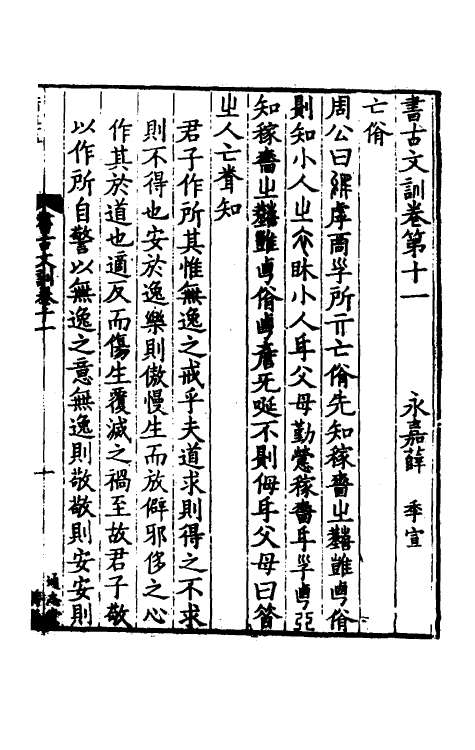 書古文訓卷第十一 永嘉薛 季宣
亡佾
周公曰虖所亓亡佾先知稼嗇㞢囏粤佾
則知小人㞢小人𠂆父母勤稼嗇𠂆粤亞
知稼嗇㞢囏粤佾粤唌不則侮𠂆父母曰昔
㞢人亡知
君子作所其惟無逸之戒乎夫道求則得之不求
則不得也安於逸樂則傲慢生而放僻邪侈之心
作其於道也適反而傷生覆滅之禍至故君子敬
以作所自警以無逸之意無逸則敬敬則安安則
書古文訓卷十一
十
通志堂